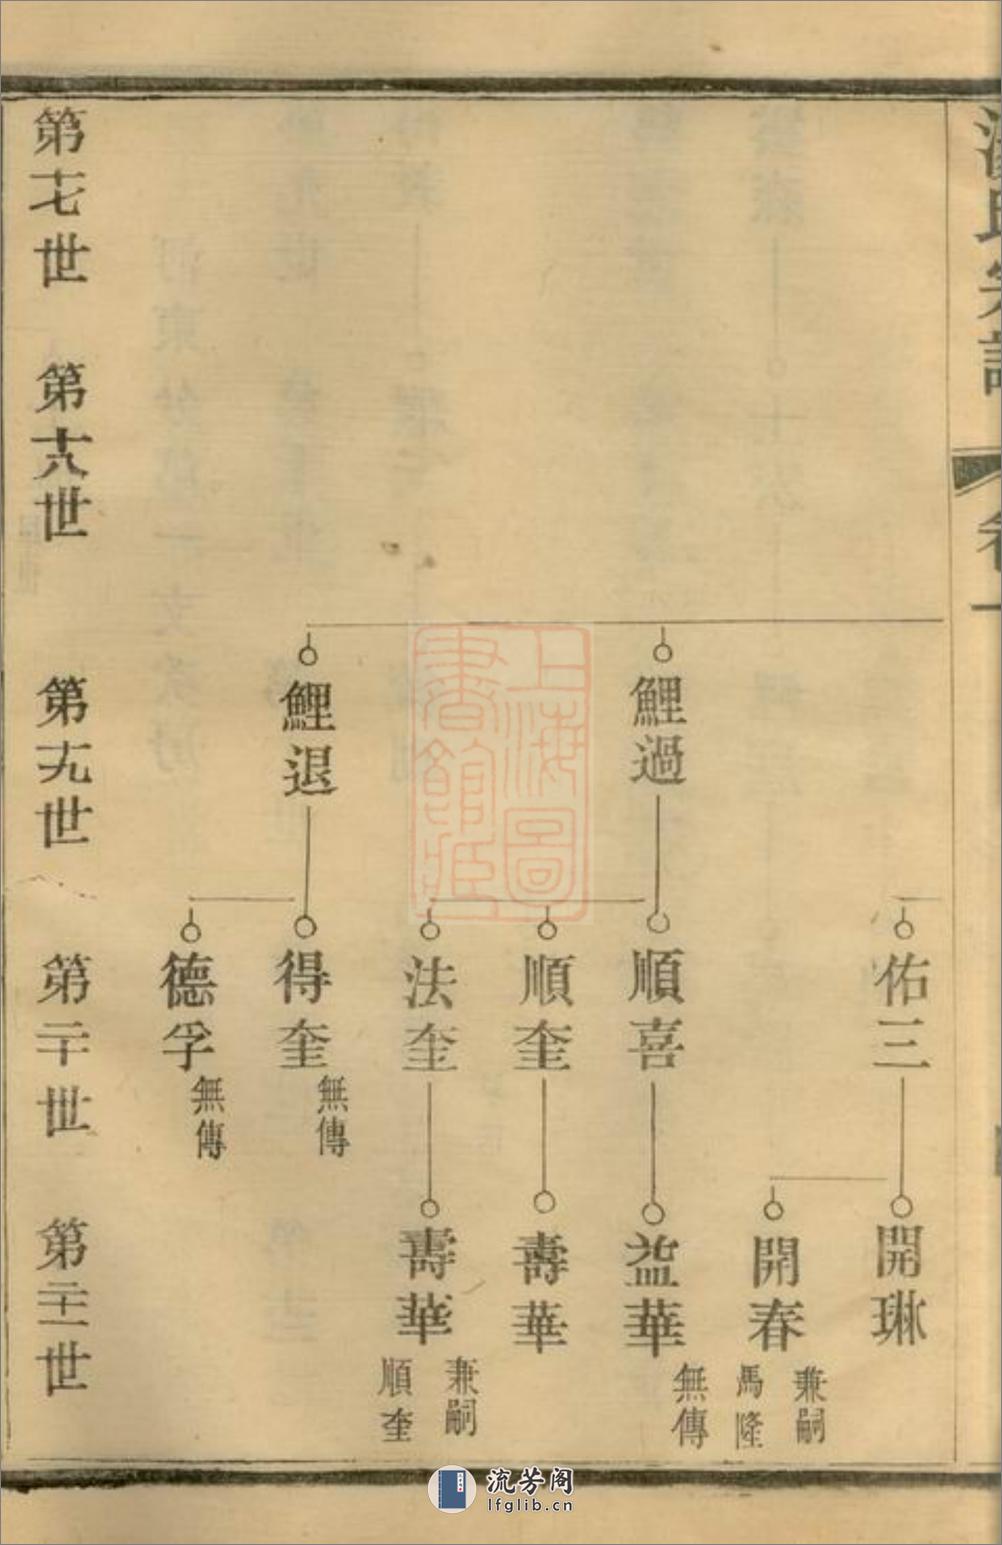 氏宗譜
卷一
佑三
開琳
開春
兼嗣
馬隆
鯉過
順喜
益華
無傳
順奎
壽華
法奎
壽華
兼嗣
順奎
鯉退
得奎
無傳
德孚
無傳
第十七世
第十八世
第十九世
第二十世
第二十一世
上海圖
書館藏
流芳阁
lfglib.cn